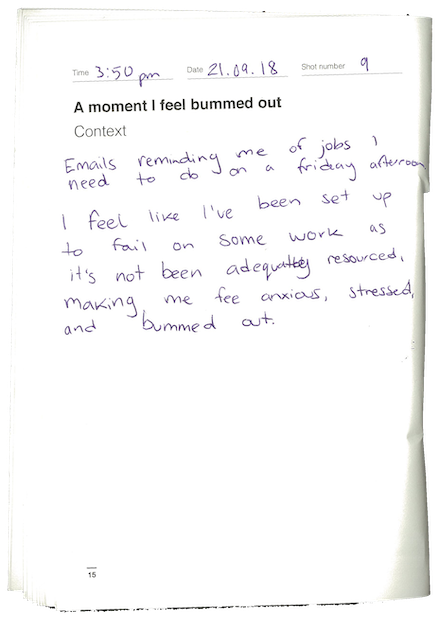 Time 3:50 pm Date 21.09.18 Shot number 9
A moment I feel bummed out
Context
Emails reminding me of jobs I
need to do on a friday afternoon
I feel like I've been set up
to fail on some work as
it's not been adequatley resourced,
making me fee anxious, stressed,
and bummed out.
15